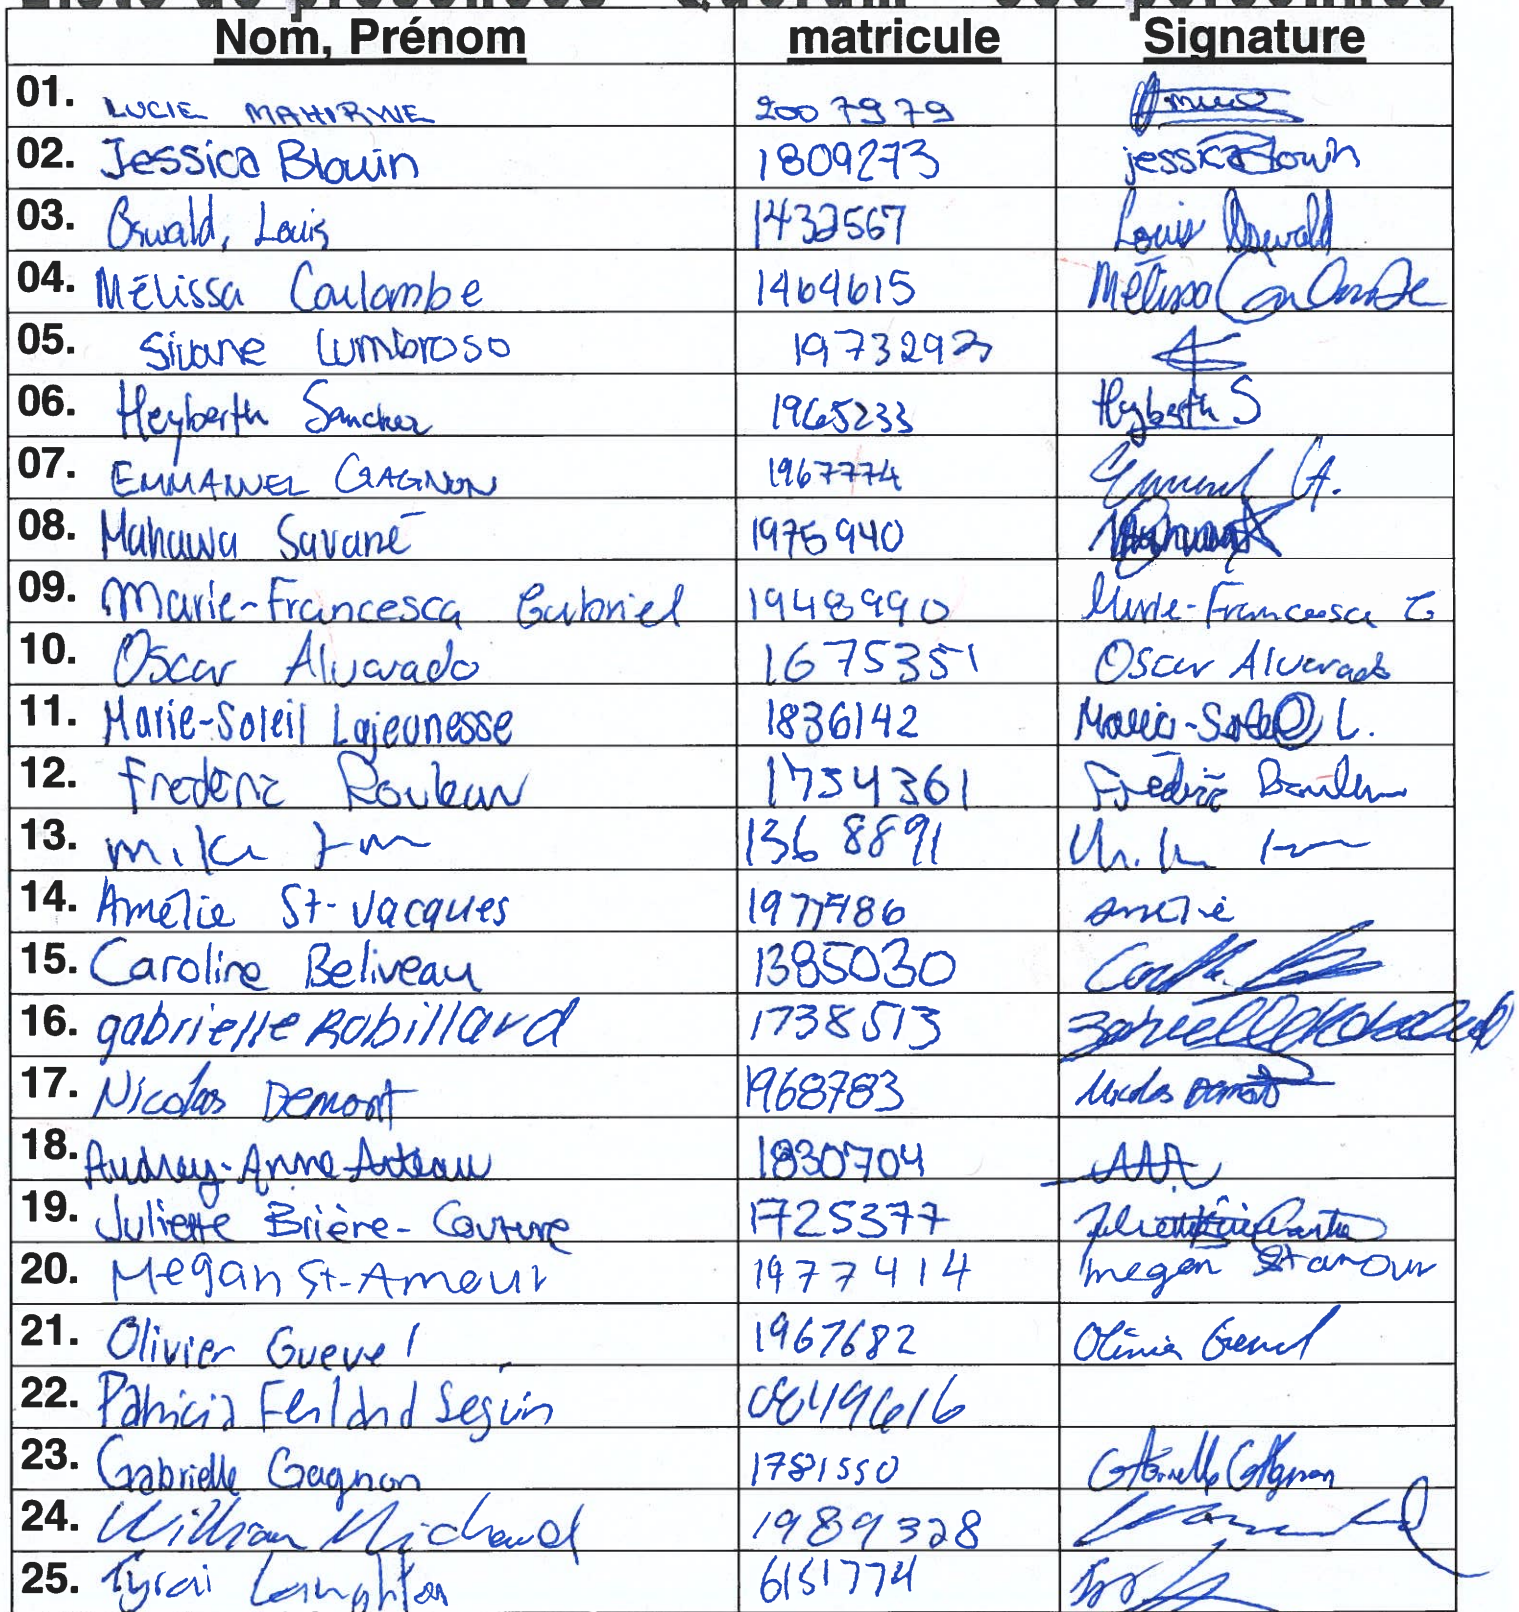 Nom, Prénom matricule Signature
01. LUCIE MAHIRWE 2007979
02. Jessica Blouin 1809273 jessica Blouin
03. Oswald, Louis 1432567 Louis Oswald
04. Mélissa Coulombe 1464615 Mélissa Coulombe
05. Sivane Lumbroso 1973292
06. Heyberth Sanchez 1965233 Heyberth S
07. EMMANUEL GAGNON 1967774 Emmanuel G.
08. Mahawa Savané 1975940
09. Marie-Francesca Gabriel 1948990 Marie-Francesca G
10. Oscar Alvarado 1675351 Oscar Alvarado
11. Marie-Soleil Lajeunesse 1836142 Marie-Soleil L.
12. Frédéric Rouleau 1754361 Frédéric Rouleau
13. 1368891
14. Amélie St-Jacques 1977986 Amélie
15. Caroline Beliveau 1385030
16. gabrielle Robillard 1738513 gabrielle Robillard
17. Nicolas Demont 1968783 Nicolas Demont
18. Audrey-Anne Arteau 1830704 AAA
19. Juliette Brière-Couture 1725377
20. Megan St-Amour 1977414 megan St amour
21. Olivier Guevel 1967682 Olivier Guevel
22. Patricia Ferland Seguin
23. Gabrielle Gagnon 1781550 Gabrielle Gagnon
24. William Michaud 1989328
25. Tyrai Langhton 6151774